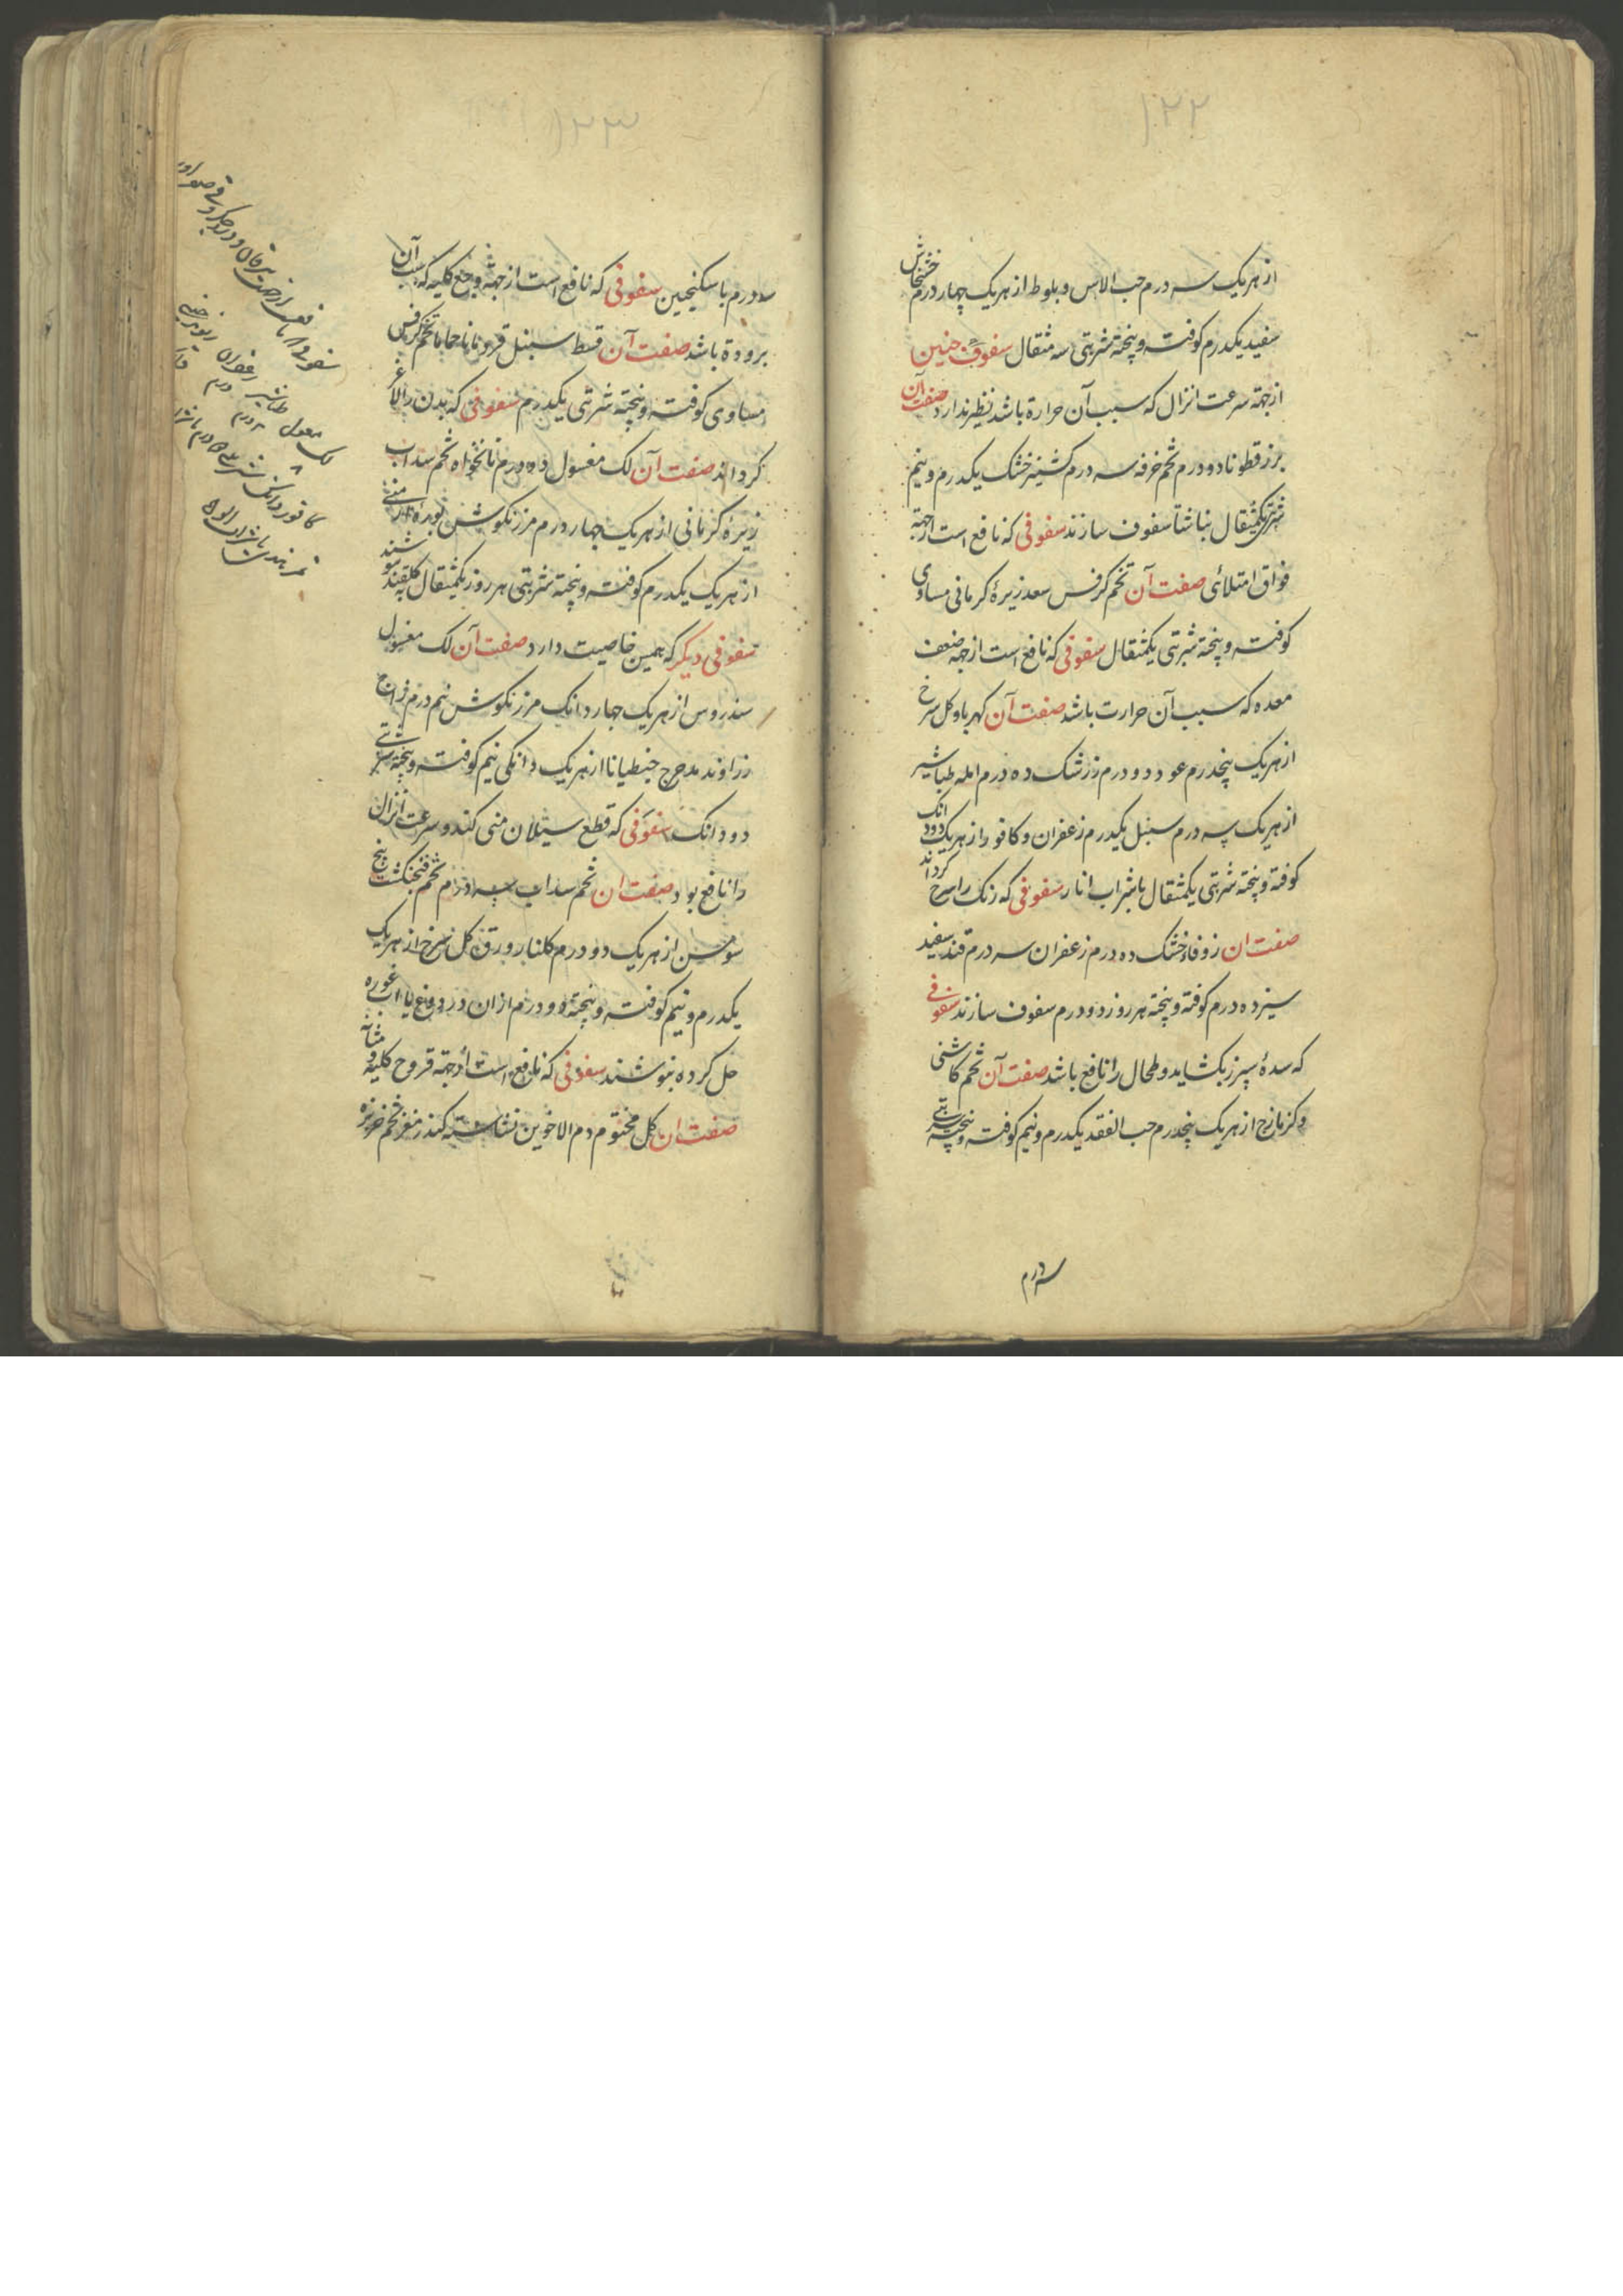 ۱۲۲
از هریک سه درم حب الاس و بلوط از هریک چهار درم خشخاش
سفید یکدرم کوفته و پخته شربتی سه مثقال سفوف
از جهة سرعت انزال که سبب آن حرارة باشد نظیر ندارد صفت آن
بزر قطونا دو درم تخم خرفه سه درم کشنیز خشک یکدرم و نیم
شربتی یکمثقال بناشتا سفوف سازند سفوفی که نافع است از جهة
فواق امتلائی صفت آن تخم کرفس سعد زیرهٔ کرمانی مساوی
کوفته و پخته شربتی یکمثقال سفوفی که نافع است از جهه ضعف
معده که سبب آن حرارت باشد صفت آن کهربا و کل سرخ
از هریک پنجدرم عود دو درم زرشک ده درم امله طباشیر
از هریک سه درم سنبل یکدرم زعفران و کافور از هریک دودانک
کوفته و پخته شربتی یکمثقال باشراب انار سفوفی که رنک را سرخ کرداند
صفت ان زوفاء خشک ده درم زعفران سه درم قند سفید
سیزده درم کوفته و پخته هر روز دو درم سفوف سازند سفوفی
که سدهٔ سپرز بکشاید و طحال را نافع باشد صفت آن تخم کاشنی
و کزمازج از هریک پنجدرم حب الفقد یکدرم و نیم کوفته و پخته شربتی
سه درم
۱۲۳
سه درم باسکنجبین سفوفی که نافع است از جهة وجع کلیه که سبب آن
برودة باشد صفت آن قسط سنبل قردمانا حماما تخم کرفس
مساوی کوفته و پخته شربتی یکدرم سفوفی که بدن را لاغر
کرداند صفت آن لک مغسول ده درم نانخواه تخم سداب
زیره کرمانی از هریک چهار درم مرزنکوش بوره ارمنی
از هریک یکدرم کوفته و پخته شربتی هر روز یکمثقال
سفوفی دیکر که همین خاصیت دارد صفت آن لک مغسول
سندروس از هریک چهار دانک مرزنکوش نیم درم
زراوند مدحرج جنطیانا از هریک دانکی نیم کوفته و پخته شربتی
دو دانک سفوفی که قطع سیلان منی کند و سرعت انزال
را نافع بود صفت ان تخم سداب سه درم تخم فنجنکشت بیخ
سوسن از هریک دو درم کلنار ورق کل سرخ از هریک
یکدرم و نیم کوفته و پخته دو درم از ان در دوغ یا اب غوره
حل کرده بنوشند سفوفی که نافع است از جهة قروح کلیه و مثانه
صفت ان کل مختوم دم الاخوین نشاسته کندر مغز تخم خربزه